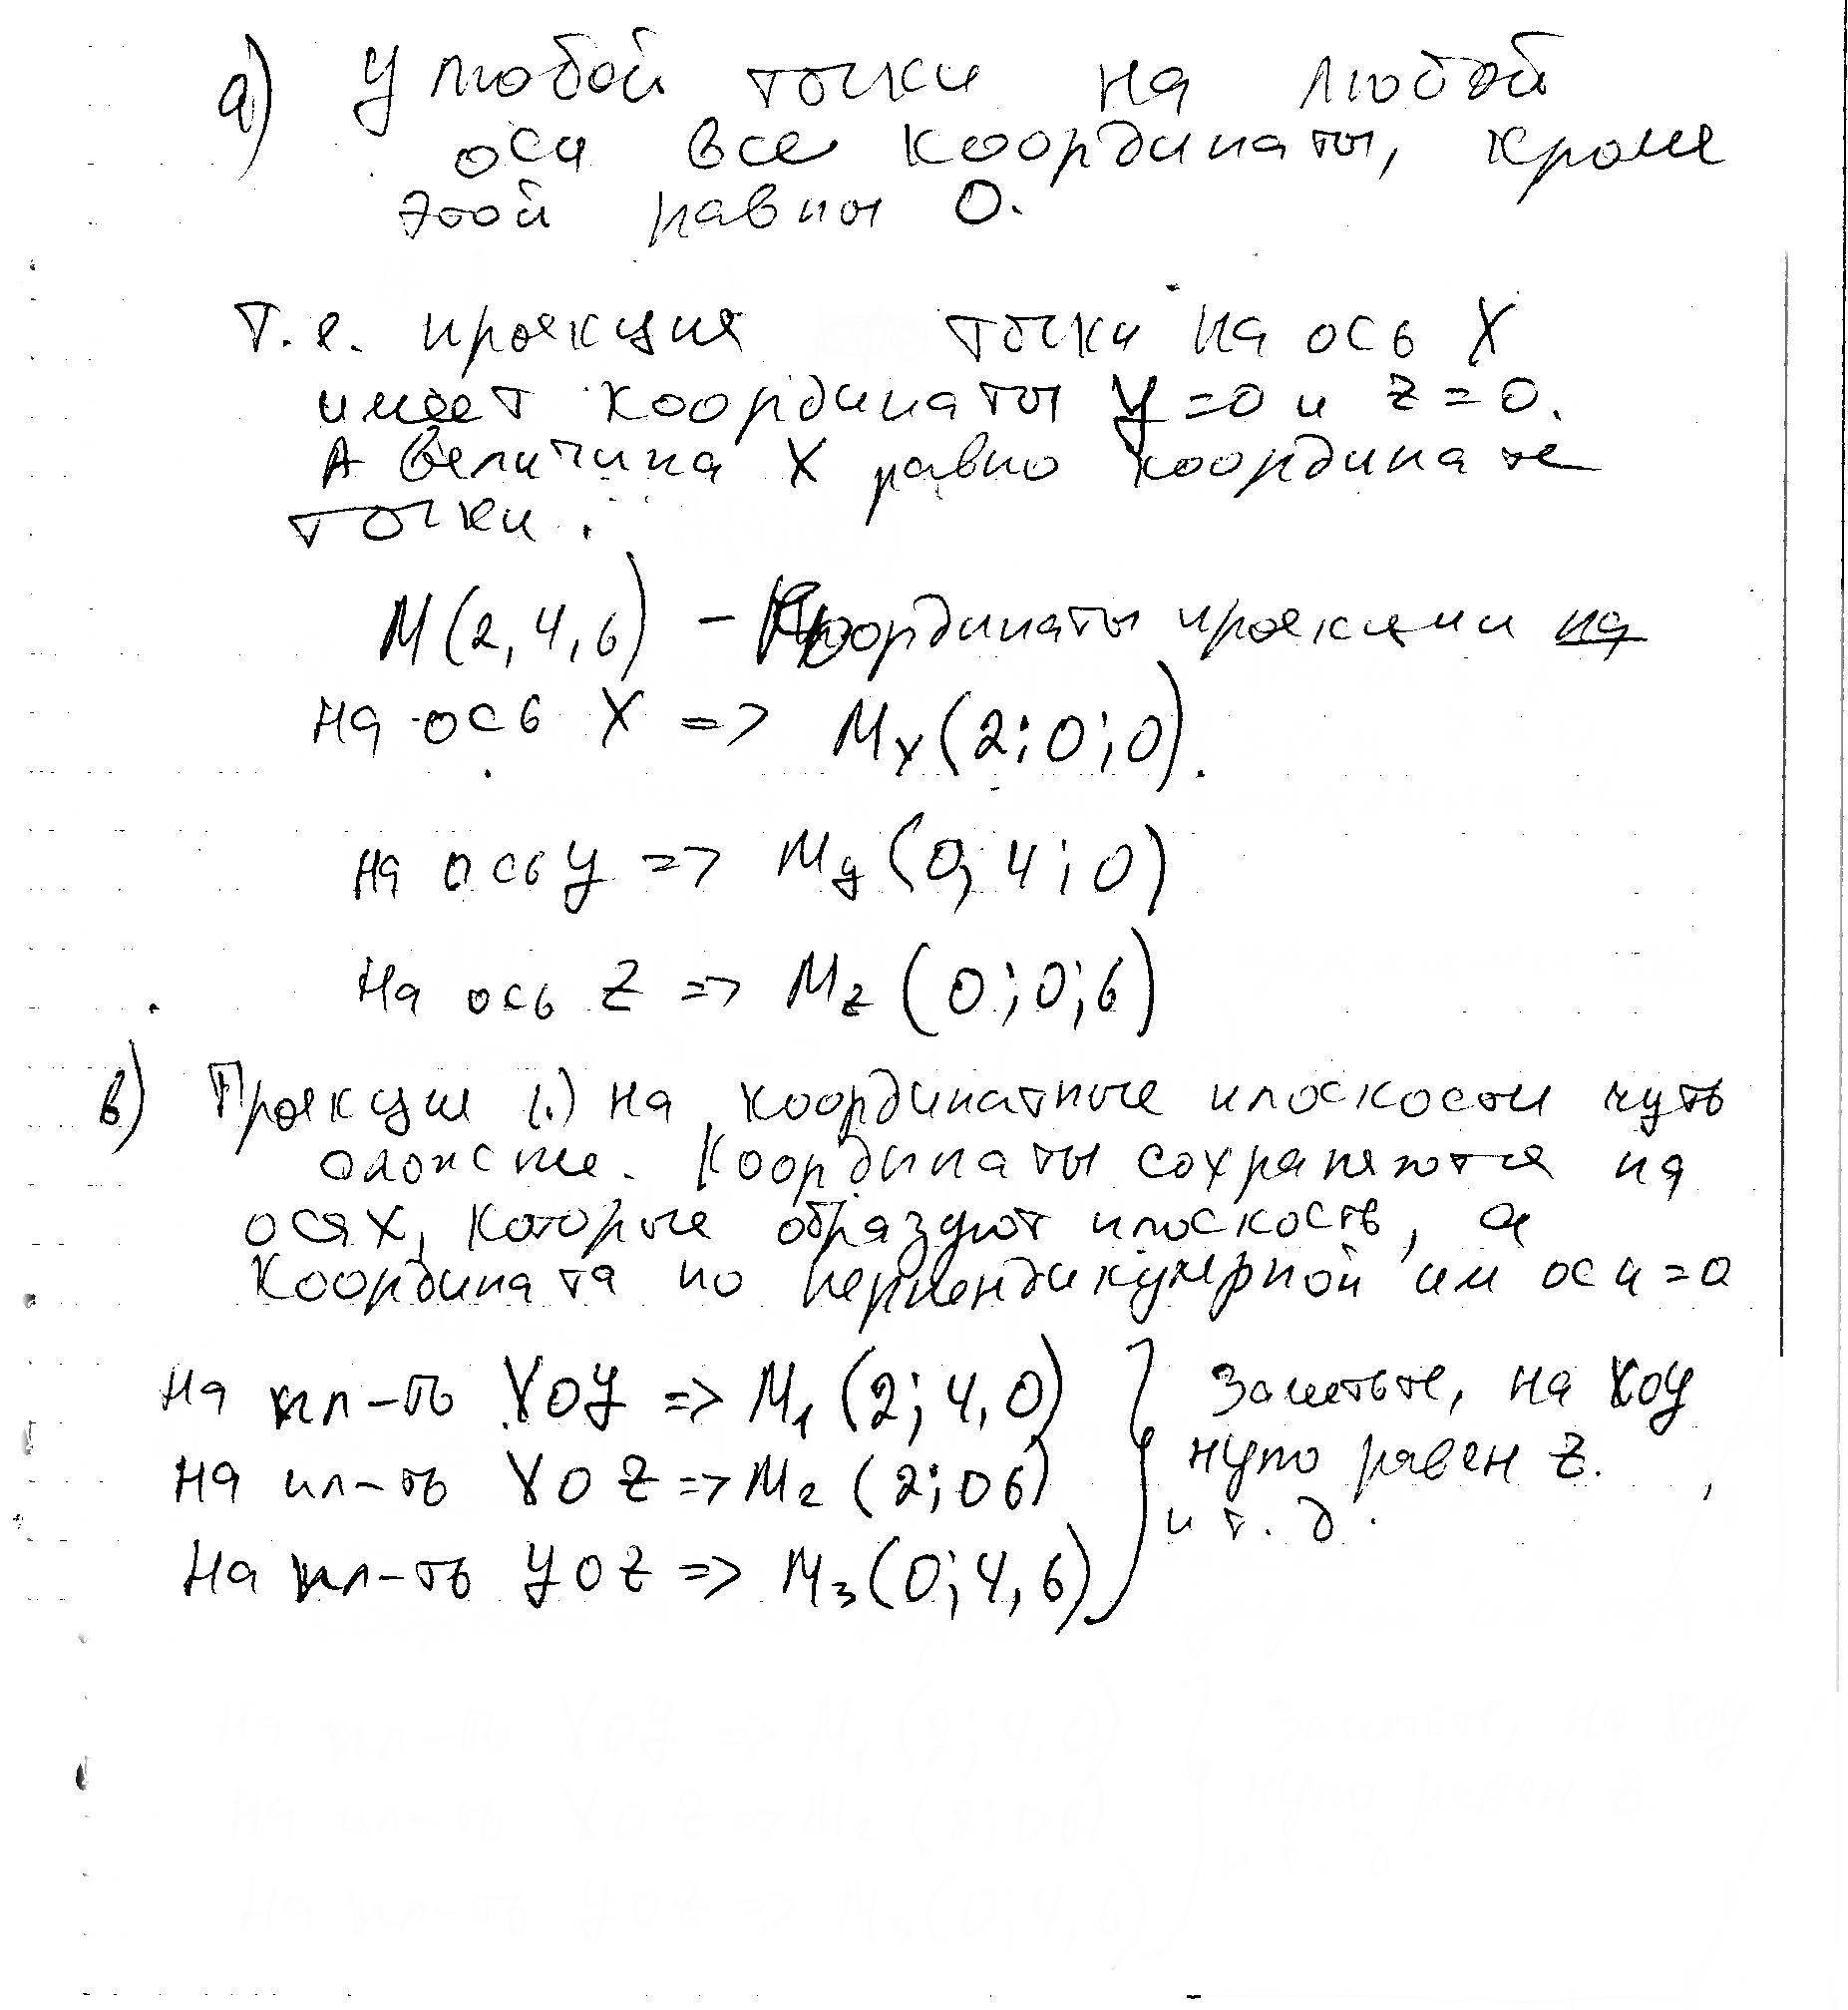 а) У любой точки на любой
оси все координаты, кроме
этой равны 0.
т.е. проекция точки на ось X
имеет координаты y=0 и z=0.
А величина X равно координате
точки.
М(2,4,6) – Координаты проекции на
на ось X => Mx(2;0;0).
на ось y => My(0;4;0)
На ось Z => Mz(0;0;6)
в) Проекции (.) на координатные плоскости чуть
сложнее. Координаты сохраняются на
осях, которые образуют плоскость, а
координата по перпендикулярной им оси=0
На пл-ть XOY => M1(2;4,0)
На пл-ть XOZ => M2(2;06)
На пл-ть YOZ => M3(0;4,6)
Заметьте, на XOY
нулю равен Z.
и т.д.